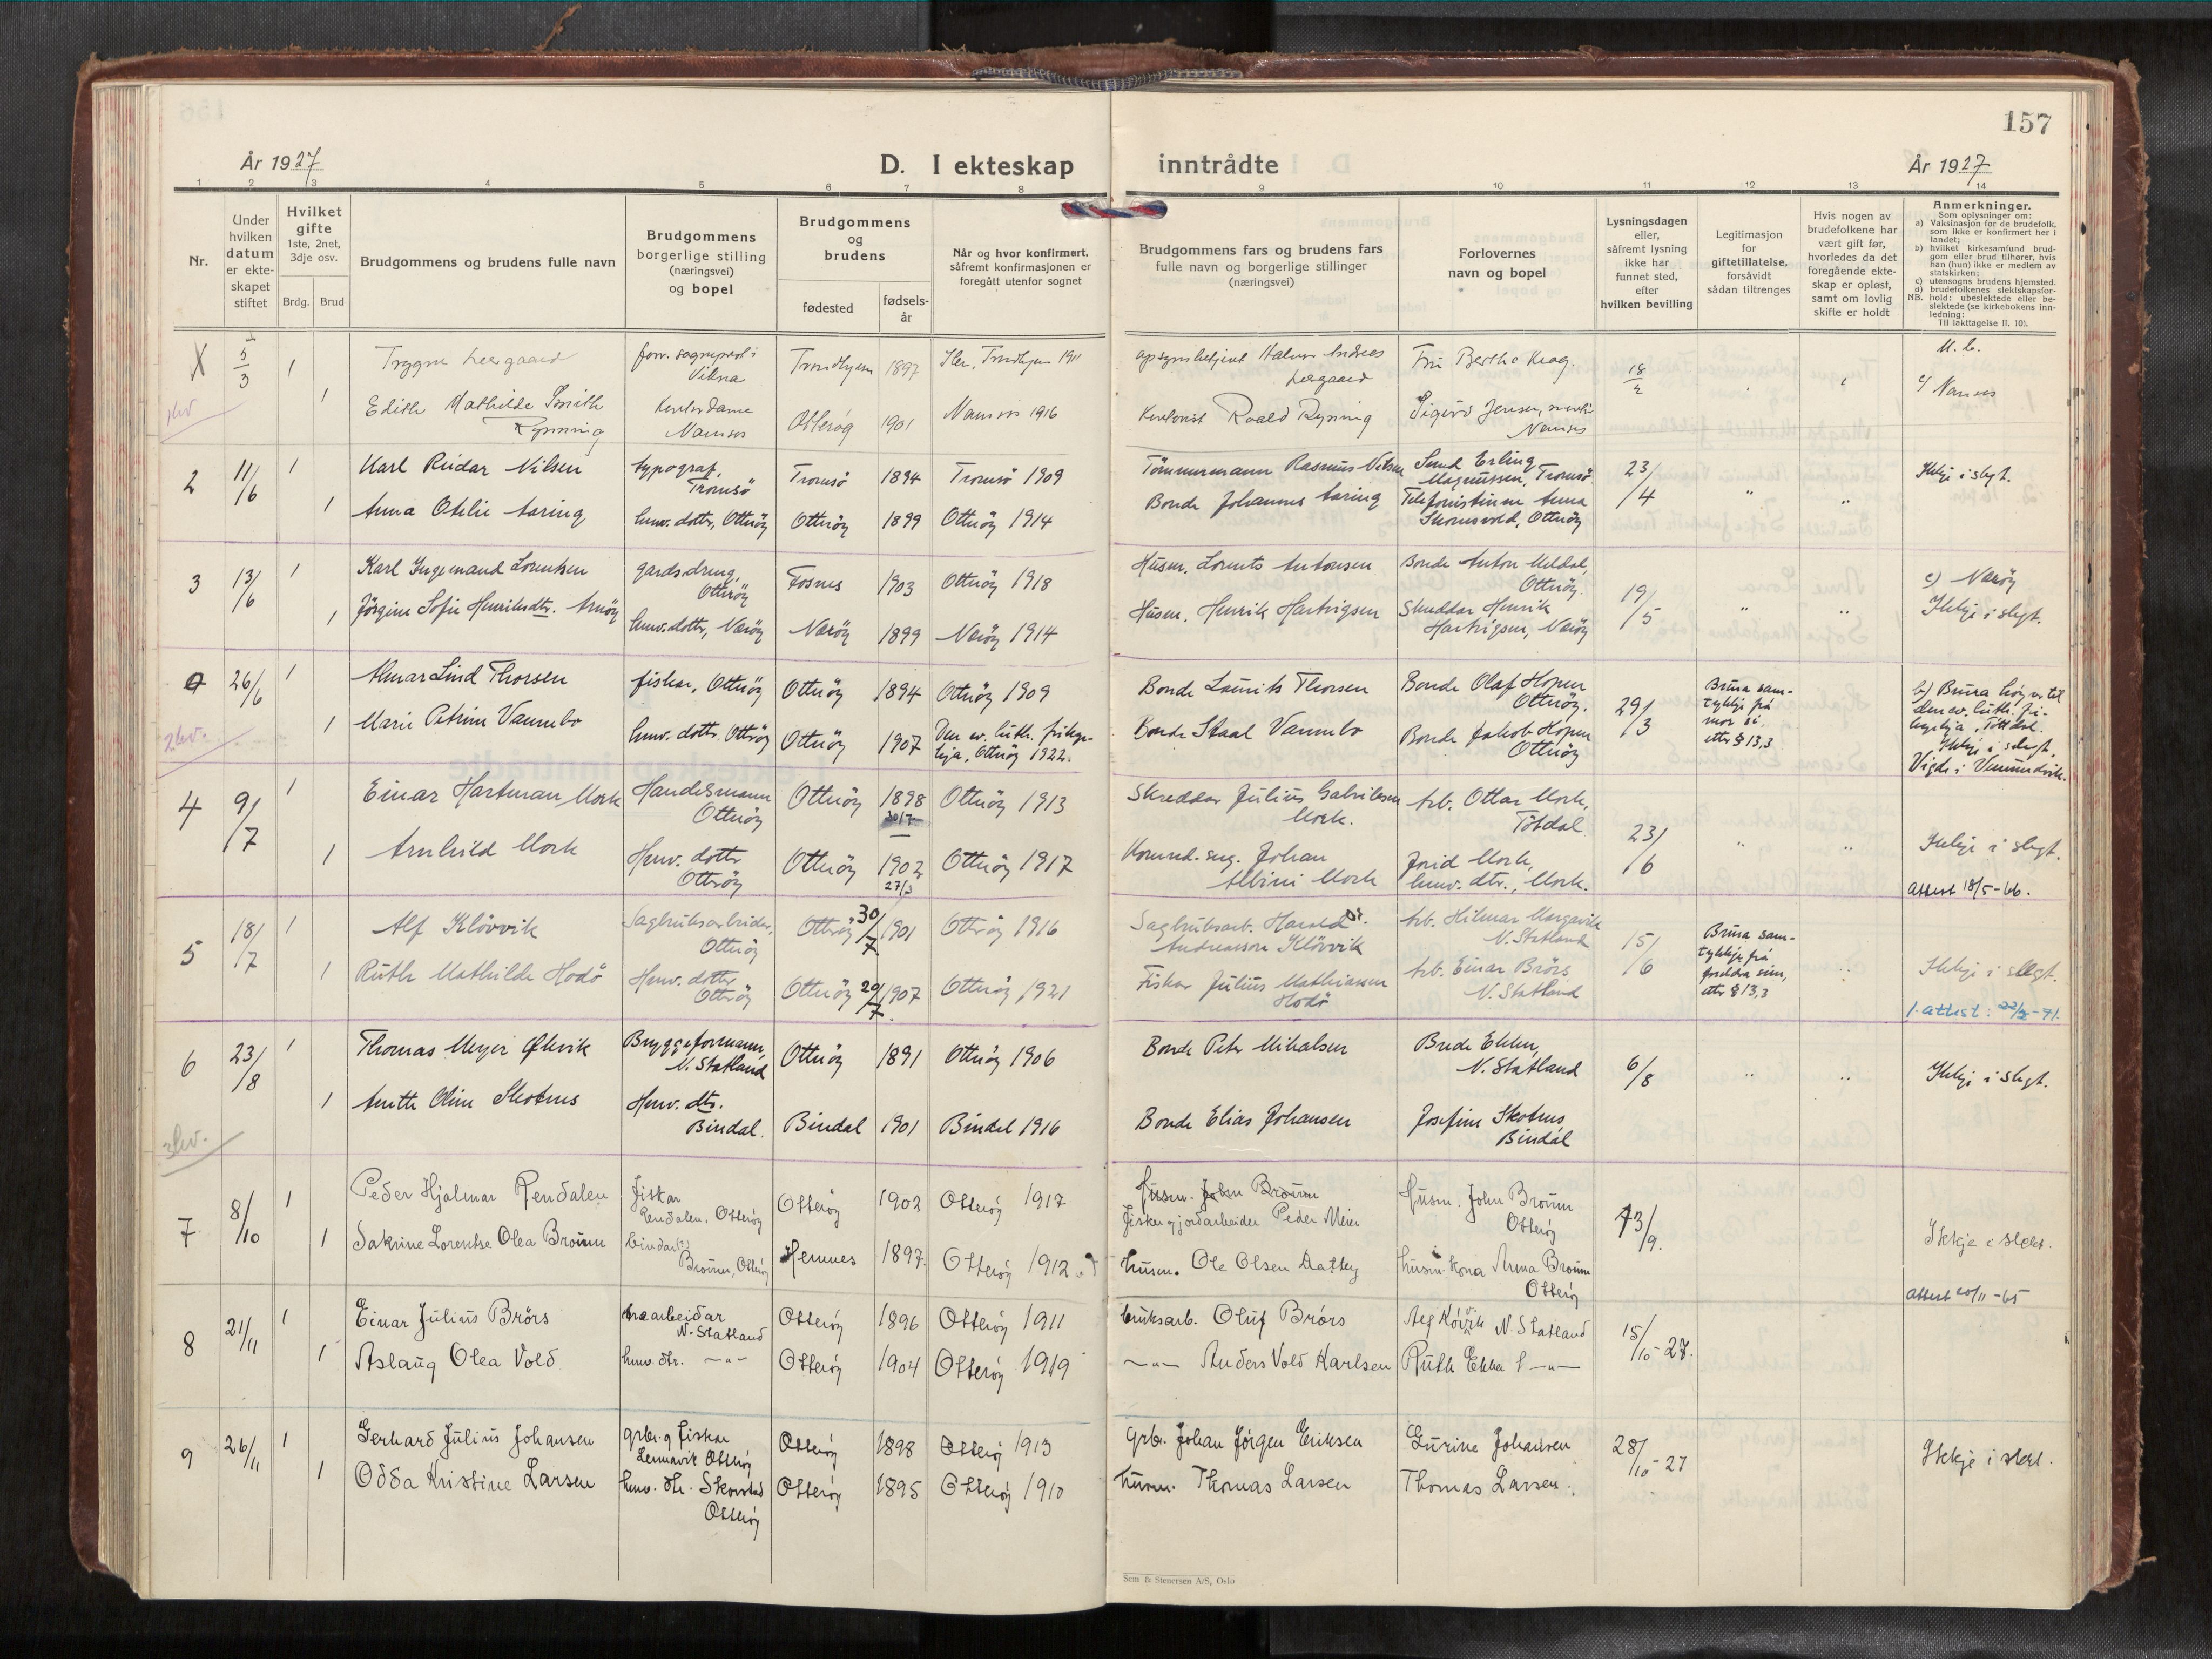 157
År 1927
D. I ekteskap inntrådte
År 1927
1 2 3 4 5 6 7 8 9 10 11 12 13 14
Nr.
Under hvilken datum er ekteskapet stiftet
Hvilket gifte
1ste, 2net, 3dje osv.
Brdg. Brud
Brudgommens og brudens fulle navn
Brudgommens borgerlige stilling (næringsvei) og bopel
Brudgommens og brudens
fødested
fødsels-år
Når og hvor konfirmert, såfremt konfirmasjonen er foregått utenfor sognet
Brudgommens fars og brudens fars fulle navn og borgerlige stillinger (næringsvei)
Forlovernes navn og bopel
Lysningsdagen eller, såfremt lysning ikke har funnet sted, efter hvilken bevilling
Legitimasjon for giftetillatelse, forsåvidt sådan tiltrenges
Hvis nogen av brudefolkene har vært gift før, hvorledes da det foregående ekteskap er opløst, samt om lovlig skifte er holdt
Anmerkninger.
Som oplysninger om:
a) Vaksinasjon for de brudefolk, som ikke er konfirmert her i landet;
b) hvilket kirkesamfund brudgom eller brud tilhører, hvis han (hun) ikke er medlem av statskirken;
c) utensogns brudens hjemsted.
d) brudefolkenes slektskapsforhold: ubeslektede eller beslektede (se kirkebokens innledning:
NB. Til iakttagelse II. 10).
X 5/3 1 Trygve Leergaard Trondhjem 1897 Ilen, Trondhjem 1911 Fru Bertha Krag. 18/2
1 Edith Mathilde Smith Rynning Kontordame Namsos Otterøy 1901 Namsos 1916 Roald Rynning Sigurd Jensen, Namsos c/ Namsos
2 11/6 1 Karl Reidar Nilsen typograf, Tromsö Tromsö 1894 Tromsö 1909 Tömmermann Rasmus Nilsen Erling Magnussen, Tromsö 23/4 " " Ikkje i slegt.
1 Anna Otilie Aaring heimv. dotter, Otterøy Otterøy 1899 Otterøy 1914 Bonde Johannes Aaring Telefonistinne Anna Skomsvold, Otterøy
3 13/6 1 Karl Ingemand Lorentsen gardsdreng, Otterøy Fosnes 1903 Otterøy 1918 Husm. Lorents Antonsen Bonde Anton Meldal, Otterøy. 19/5 " " c) Nærøy
1 Jörgine Sofie Henriksdtr. Arnøy heimv. dotter, Nærøy Nærøy 1899 Nærøy 1914 Husm. Henrik Hartvigsen Skreddar Henrik Hartvigsen, Nærøy Ikkje i slegt.
26/6 1 Almar Lind Thorsen fiskar, Otterøy Otterøy 1894 Otterøy 1909 Bonde Laurits Thorsen Bonde Olaf Hopen Otterøy. 29/3 Brura samtykkje frå mor si. etter § 13,3
1 Marie Petrine Vannebo heimv. dotter. Otterøy Otterøy 1907 Den ev. luth. frikyrkja, Otterøy 1922. Bonde Staal Vannebo Bonde Jakob Hopen Otterøy b) Brura høyrer til den ev. luth. frikyrkja, Ikkje i slegt. Vigde i Vemundvik.
4 9/7 1 Einar Hartman Mork Handelsmann Otterøy Otterøy 1898 30/7 Otterøy 1913 Skreddar Julius Gabrielsen Mork. Arb. Ottar Mork, Tötdal 23/6 " " Ikkje i slegt.
1 Arnhild Mork Heimv. dotter Otterøy Otterøy 1902 27/3 Otterøy 1917 Johan Albini Mork Jorid Mork, heimv. dtr., Mork. Attest 18/5-66.
5 18/7 1 Alf Klövvik Sagbruksarbeider, Otterøy Otterøy 30/7 1901 Otterøy 1916 Sagbruksarb. Harald Andreassen Klövvik Arb. Hilmar N. Statland 15/6 Brura samtykkje frå foreldra sine, etter § 13,3 " Ikkje i slegt.
1 Ruth Mathilde Hodö Heimv. dotter Otterøy Otterøy 20/7 1907 Otterøy 1921 Fiskar Julius Mathiassen Hodö Arb. Einar Brörs N. Statland
6 23/8 1 Thomas Meyer Økvik Bryggeformann, N. Statland Otterøy 1891 Otterøy 1906 Bonde Peter Mikalsen Brede Ekker, N. Statland 6/8 " " Ikkje i slegt.
1 Anette Oline Skotnes Heimv. dtr. Bindal. Bindal 1901 Bindal 1916 Bonde Elias Johansen Josefine Skotnes Bindal
7 8/10 1 Peder Hjalmar Rendalen Fiskar Rendalen, Otterøy Otterøy 1902 Otterøy 1917 Husm. John Brøunn Fisker og jordarbeider Peder Meier Husm. John Brøunn Otterøy 13/9. Ikkje i slekt.
1 Sakrine Lorentse Olea Brøunn Brøunn, Otterøy Hemnes 1897. Otterøy 1912 husm. Ole Olsen husm. kona Anna Brøunn Otterøy
Attest 20/11-65
8 21/11 1 Einar Julius Brörs N. Statland Otterøy 1896 Otterøy 1911 bruksarb. Oluf Brörs N. Statland 15/10-27.
1 Aslaug Olea Vold heimv. dtr. —"— Otterøy 1904 Otterøy 1919 —"— Anders Vold Karlsen Ruth Ekker —"—
9 26/11 1 Gerhard Julius Johansen grbr. og fiskar Otterøy Otterøy 1898 Otterøy 1913 grbr. Johan Jörgen Eriksen Gurine Johansen 28/10-27 Ikkje i slekt.
1 Odda Kristine Larsen heimv. dtr. Skorstad Otterøy Otterøy 1895 Otterøy 1910 husm. Thomas Larsen Thomas Larsen.
Sem & Stenersen A/S, Oslo